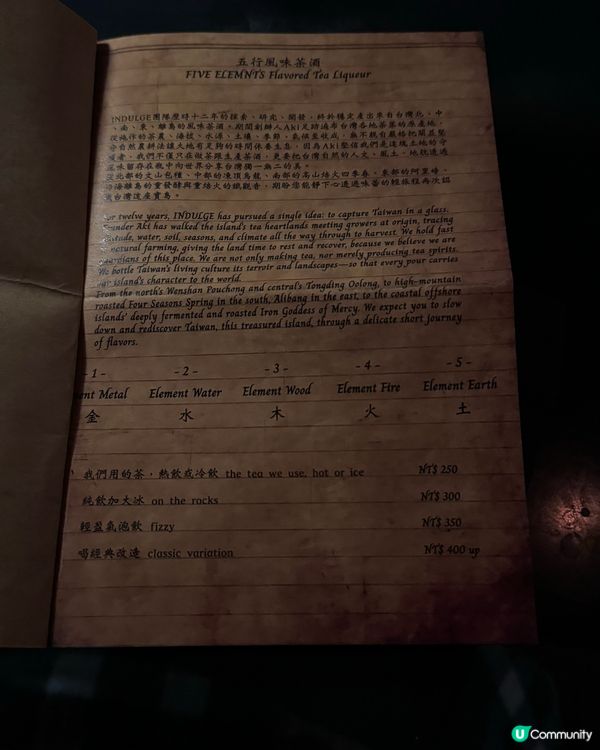 五行風味茶酒
FIVE ELEMNTS Flavored Tea Liqueur
INDULGE團隊歷時十二年的探索、研究、開發，終於穩定產出來自台灣北、中
、南、東、離島的風味茶酒。期間創辦人Aki足跡遍布台灣各地茶葉的原產地，
從純作的茶農、海拔、水源、土壤、季節、氣候至收成，
守自然農耕法讓大地有足夠的時間休養生息，因為Aki堅信我們是這塊土地的守
護者。我們不僅只在做茶跟生產茶酒，更要把台灣自然的人文、風土、地貌透過
風味留存在瓶中向世界分享台灣獨一無二的美。
從北部的文山包種、中部的凍頂烏龍、南部的高山焙火四季春、東部的阿里磅、
離島的重發酵與重焙火的鐵觀音，期盼您能靜下心透過味蕾的輕旅程再次認
識台灣這座寶島。
For twelve years, INDULGE has pursued a single idea: to capture Taiwan in a glass.
Founder Aki has walked the island's tea heartlands meeting growers at origin, tracing
altitude, water, soil, seasons, and climate all the way through to harvest. We hold fast
to natural farming, giving the land time to rest and recover, because we believe we are
guardians of this place. We are not only making tea, nor merely producing tea spirits.
We bottle Taiwan's living culture its terroir and landscapes—so that every pour carries
our island's character to the world.
From the north's Wenshan Pouchong and central's Tongding Oolong, to high-mountain
roasted Four Seasons Spring in the south, Alibang in the east, to the coastal offshore
islands' deeply fermented and roasted Iron Goddess of Mercy. We expect you to slow
down and rediscover Taiwan, this treasured island, through a delicate short journey
of flavors.
- 1 - - 2 - - 3 - - 4 - - 5 -
ent Metal Element Water Element Wood Element Fire Element Earth
金 水 木 火 土
我們用的茶，熱飲或冷飲 the tea we use, hot or ice NT$ 250
純飲加大冰 on the rocks NT$ 300
輕盈氣泡飲 fizzy NT$ 350
喝經典改造 classic variation NT$ 400 up
U Community